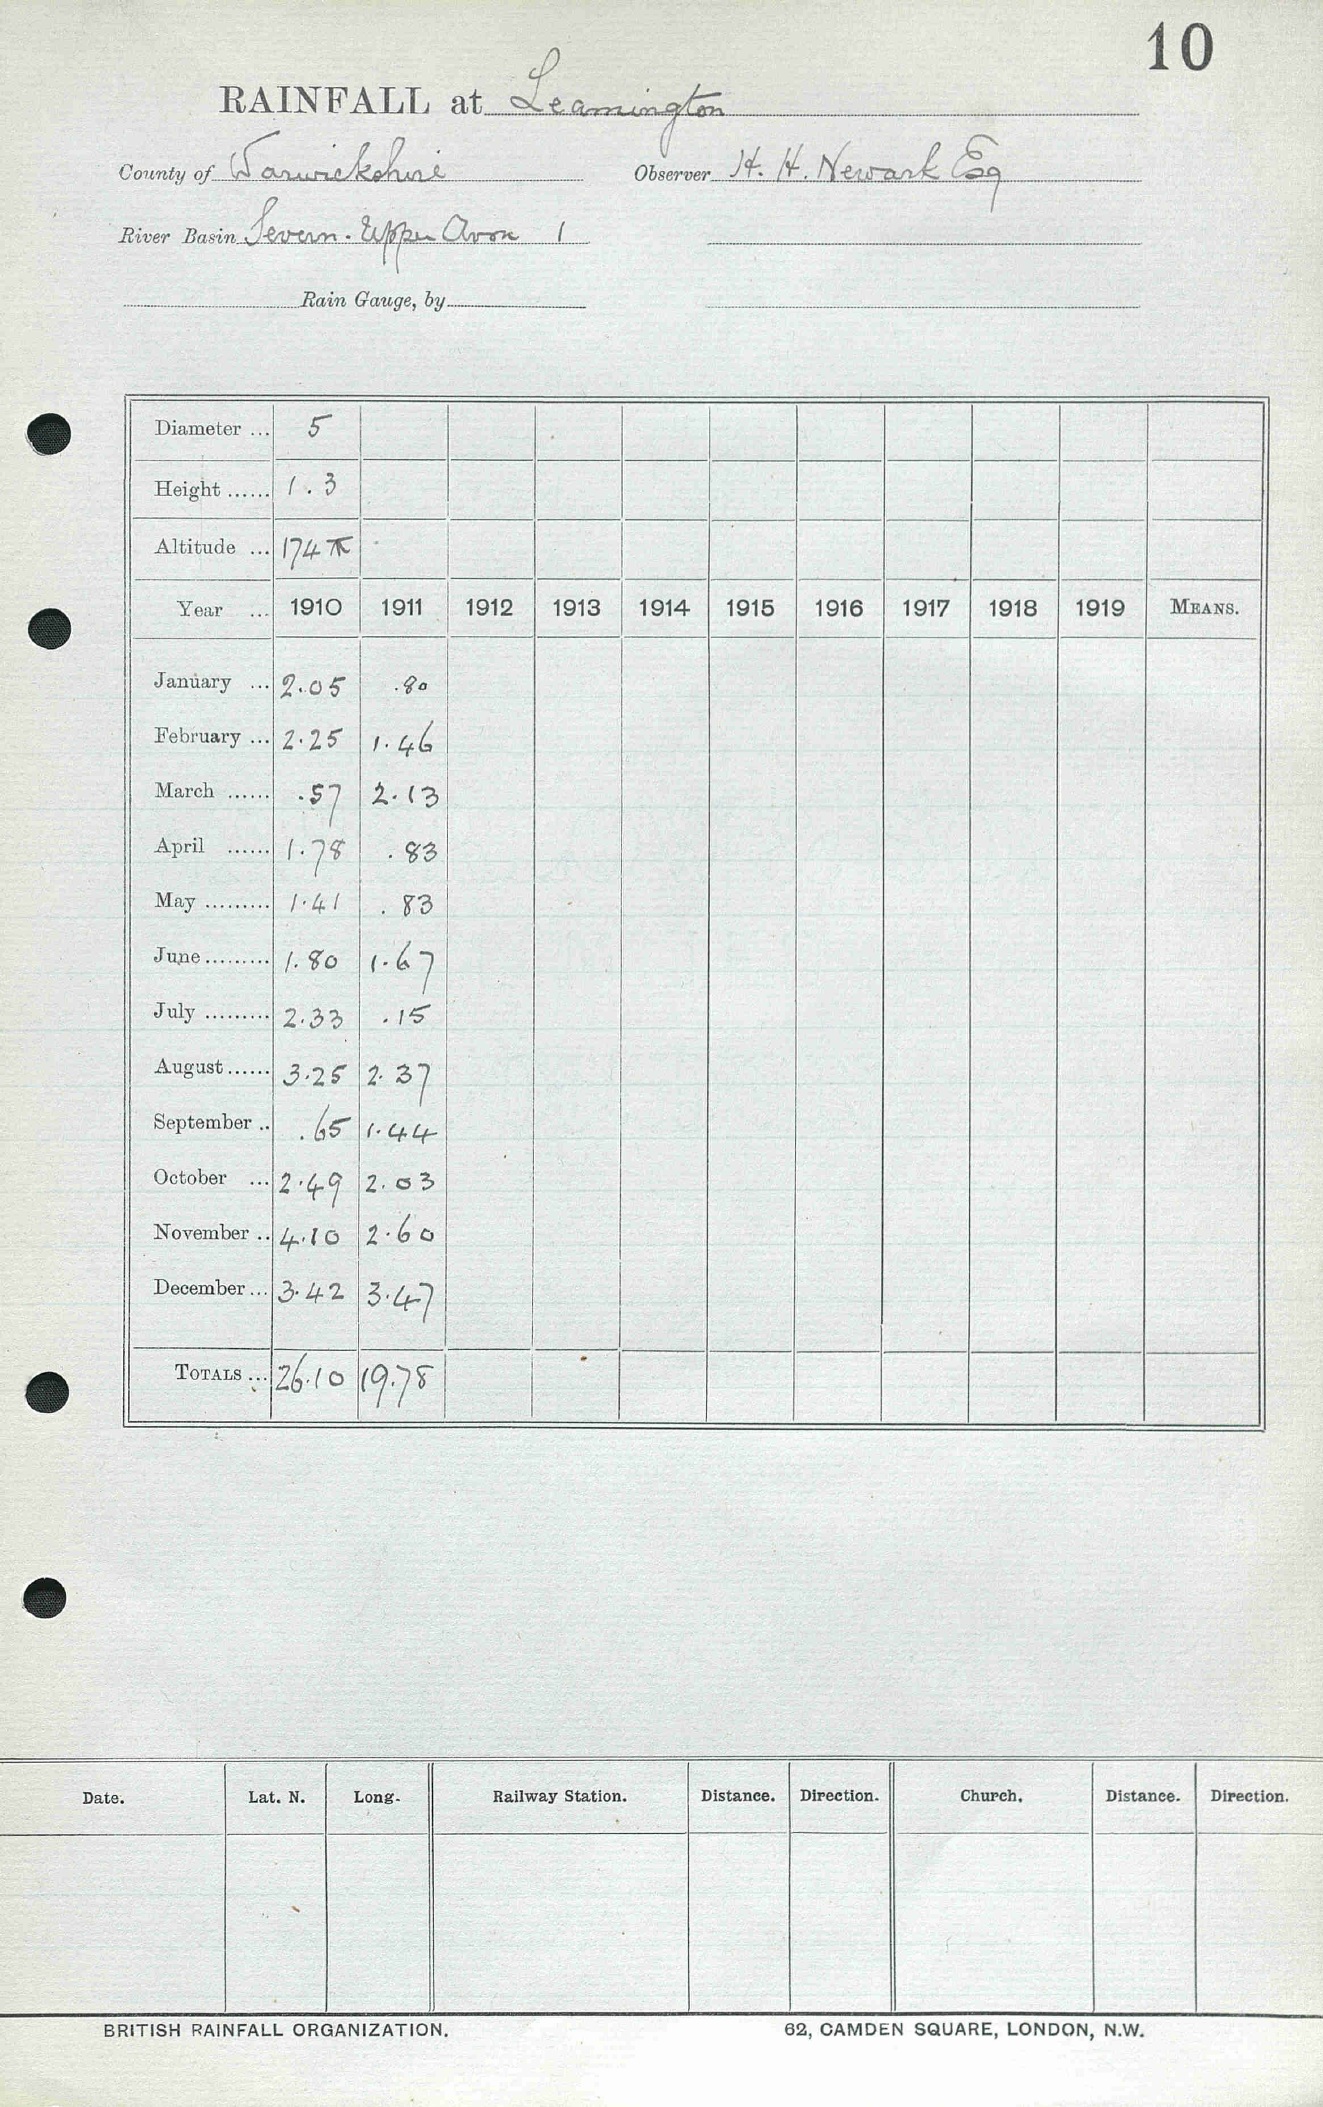 10
RAINFALL at Leamington
County of Warwickshire Observer H. H. Newark Esq
River Basin Severn - Upper Avon 1
Rain Gauge, by
Diameter ... 5
Height ...... 1.3
Altitude ... 174
Year ... 1910 1911 1912 1913 1914 1915 1916 1917 1918 1919 MEANS.
January ... 2.05 .80
February ... 2.25 1.46
March ...... .57 2.13
April ...... 1.78 .83
May ......... 1.41 .83
June ......... 1.80 1.67
July ......... 2.33 .15
August ...... 3.25 2.37
September .. .65 1.44
October ... 2.49 2.03
November .. 4.10 2.60
December ... 3.42 3.47
TOTALS ... 26.10 19.78
Date. Lat. N. Long. Railway Station. Distance. Direction. Church. Distance. Direction.
BRITISH RAINFALL ORGANIZATION. 62, CAMDEN SQUARE, LONDON, N.W.